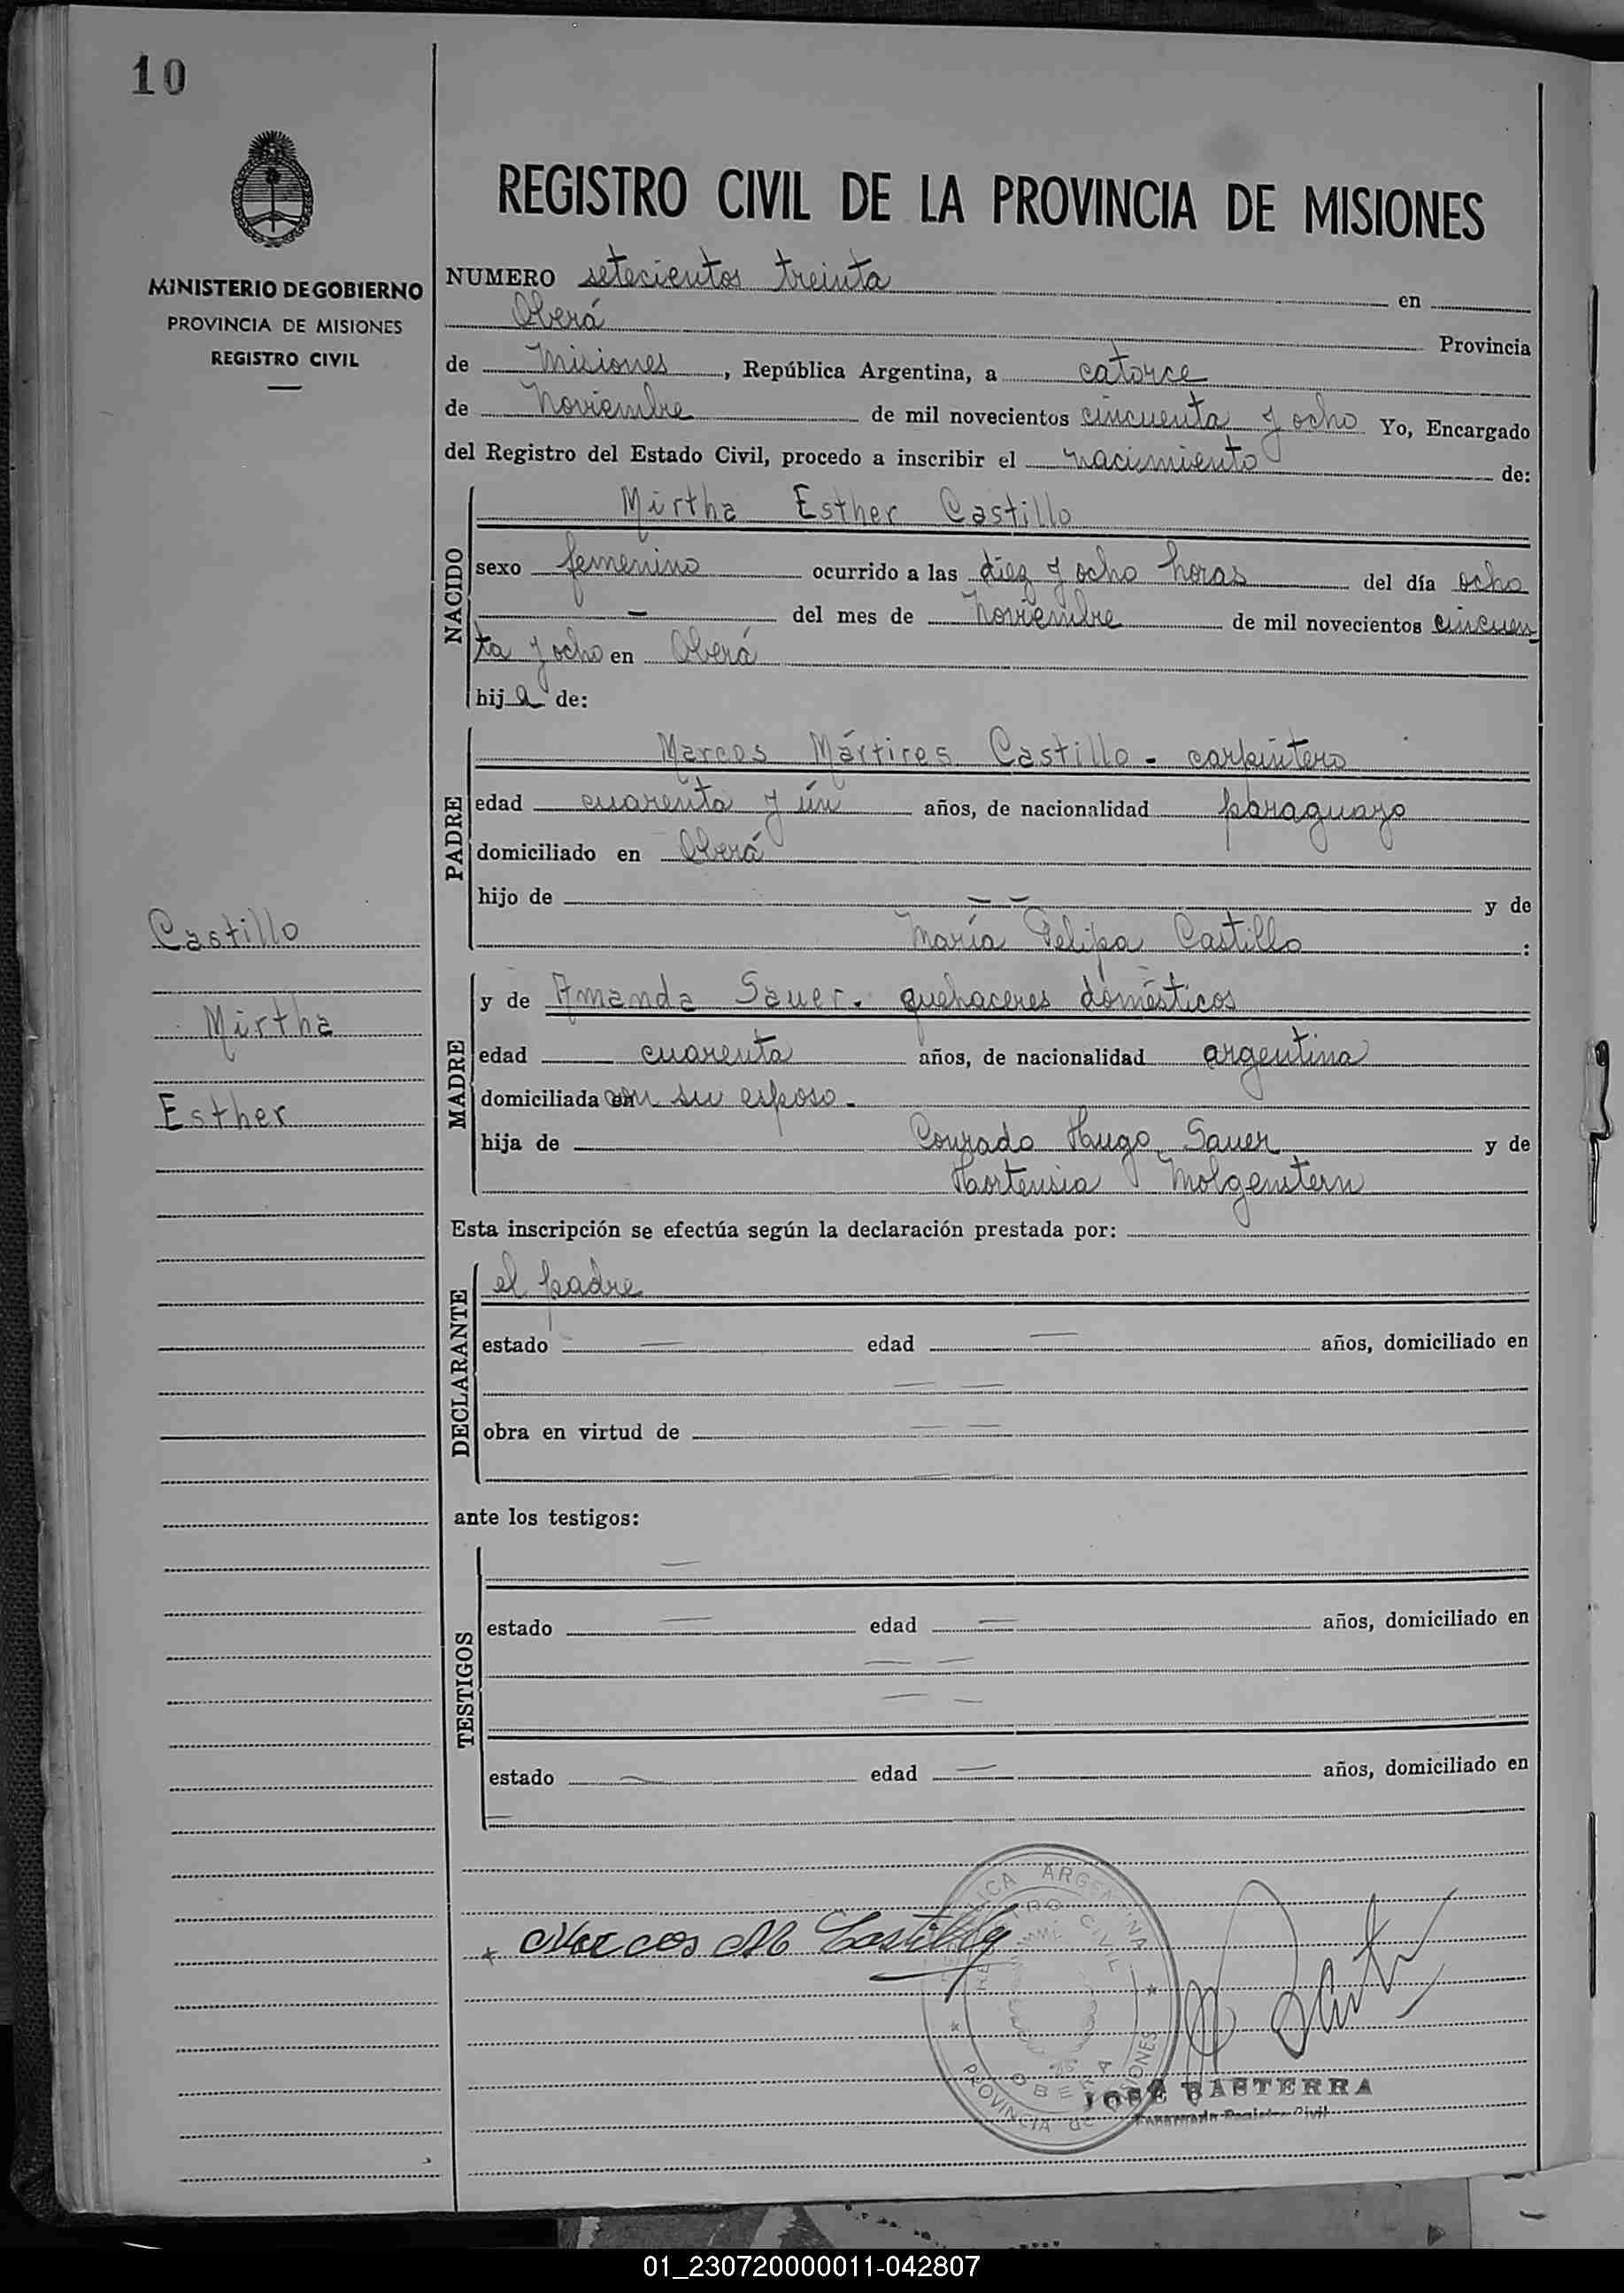 10
MINISTERIO DE GOBIERNO
PROVINCIA DE MISIONES
REGISTRO CIVIL
Castillo
Mirtha
Esther
REGISTRO CIVIL DE LA PROVINCIA DE MISIONES
NUMERO setecientos treinta en
Oberá Provincia
de Misiones, República Argentina, a catorce
de Noviembre de mil novecientos cincuenta y ocho Yo, Encargado
del Registro del Estado Civil, procedo a inscribir el nacimiento de:
NACIDO
Mirtha Esther Castillo
sexo femenino ocurrido a las diez y ocho horas del día ocho
— del mes de Noviembre de mil novecientos cincuen
ta y ocho en Oberá
hija de:
PADRE
Marcos Mártires Castillo - carpintero
edad cuarenta y ún años, de nacionalidad paraguayo
domiciliado en Oberá
hijo de — — y de
María Felipa Castillo :
MADRE
y de Amanda Sauer. quehaceres domésticos
edad cuarenta años, de nacionalidad argentina
domiciliada con su esposo.
hija de Conrado Hugo Sauer y de
Hortensia Molgenstern
Esta inscripción se efectúa según la declaración prestada por:
DECLARANTE
el padre
estado — edad — años, domiciliado en
— —
obra en virtud de — —
— —
ante los testigos:
TESTIGOS
—
estado — edad — años, domiciliado en
— —
— —
estado — edad — años, domiciliado en
—
Marcos M Castillo
ARGENTINA
CIVIL
OBERA
PROVINCIA de MISIONES
JOSÉ BASTERRA
Encargado Registro Civil
01_230720000011-042807